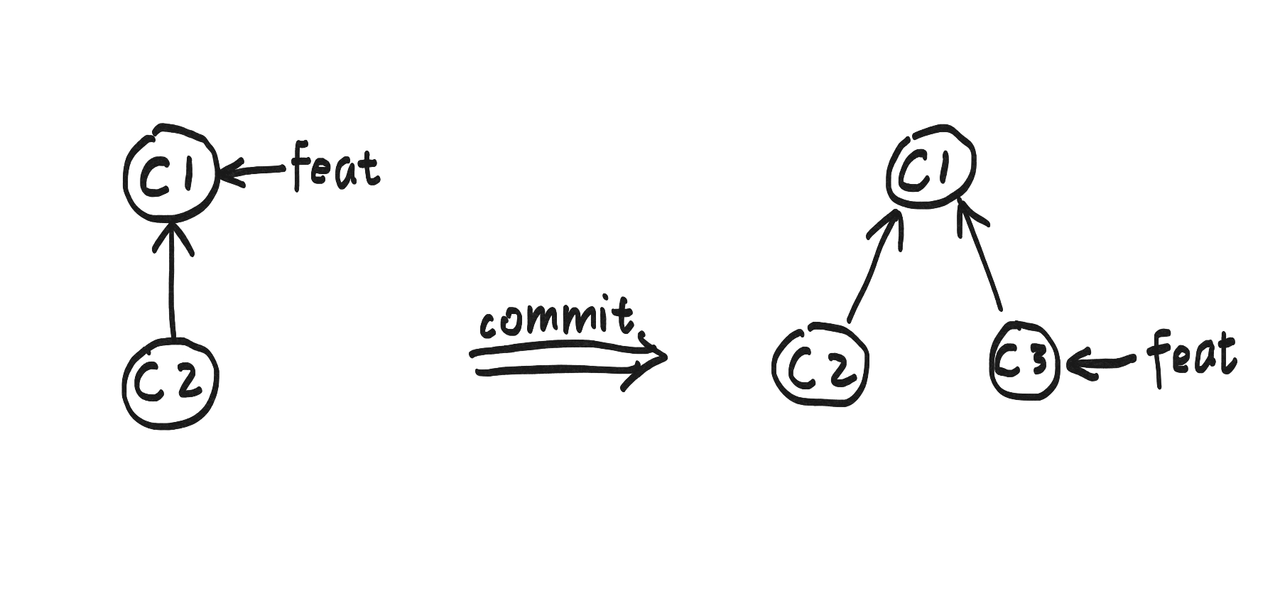 C1
feat
C2
commit
C1
C2
C3
feat